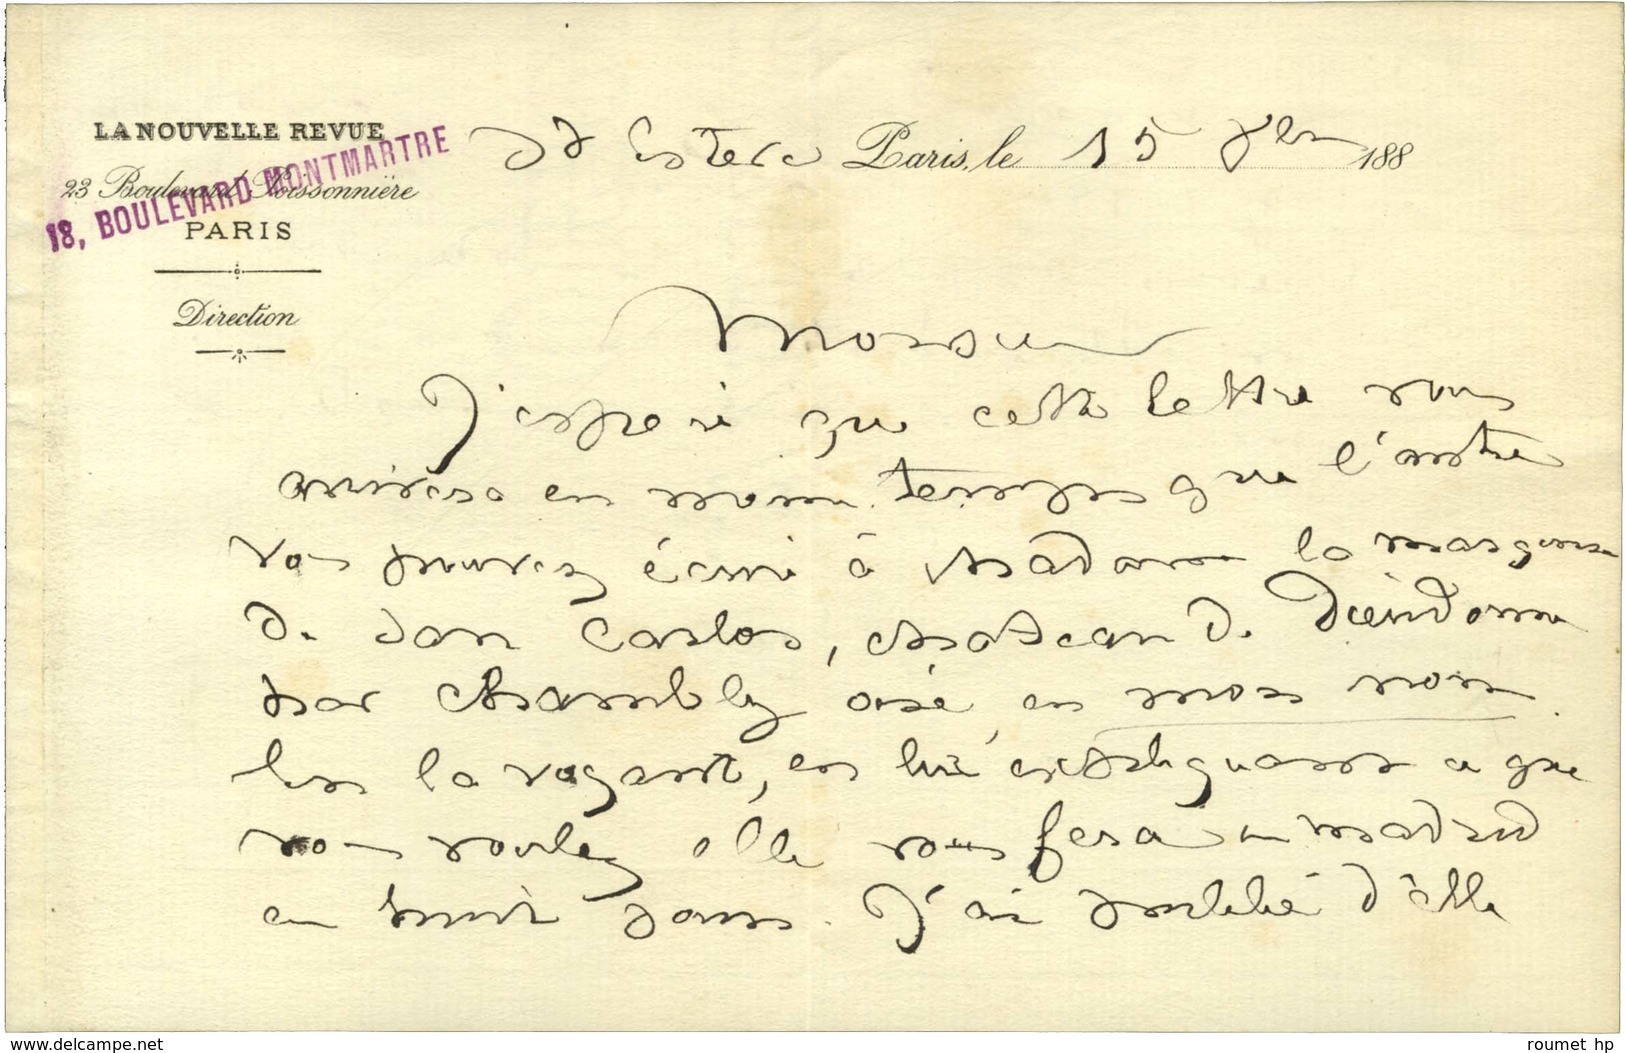 LA NOUVELLE REVUE
23 Boulevard Poissonnière
18, BOULEVARD MONTMARTRE
PARIS
Direction
St Estève Paris, le 15 188
Monsieur
J'espère que cette lettre vous
arrivera en même temps que l'autre
vous pouvez écrire à Madame la marquise
de San Carlos, château de Dieudonne
par Chambly oise, en mon nom
en la voyant, en lui expliquant ce que
vous voulez elle vous fera a madrid
en huit jours. J'ai publié d'elle
delcampe.net
roumet hp